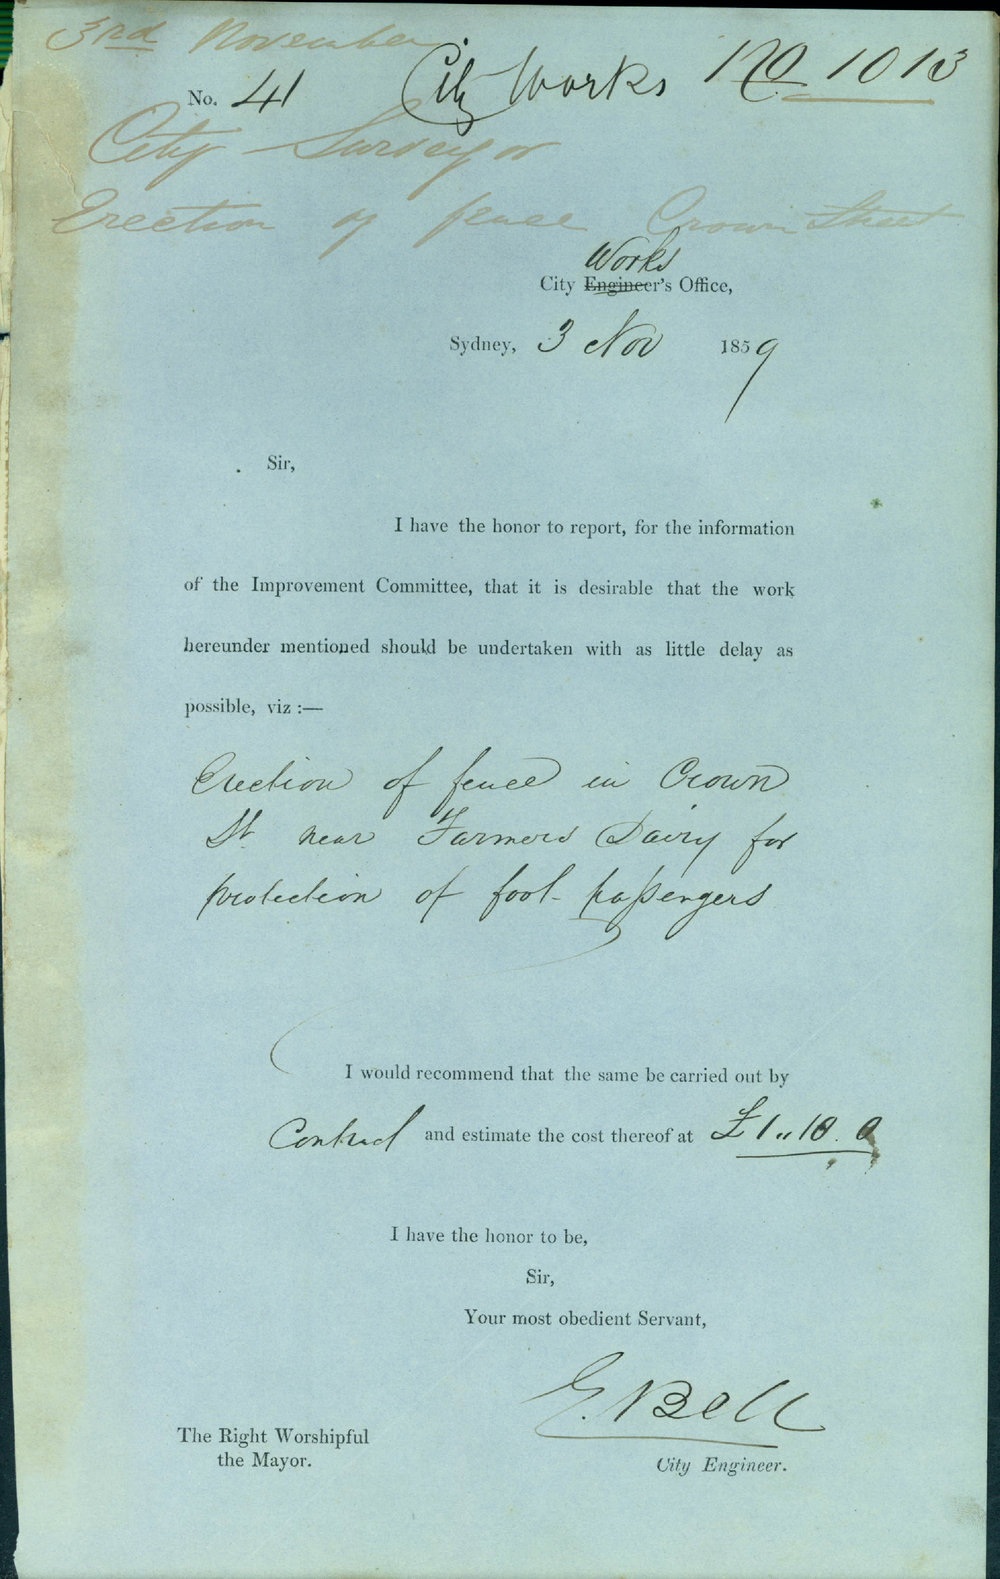 3rd November
No. 41 City Works No 1013
City Surveyor
Erection of fence Crown Street
Works
City Engineer's Office,
Sydney, 3 Nov 1859
Sir,
I have the honor to report, for the information
of the Improvement Committee, that it is desirable that the work
hereunder mentioned should be undertaken with as little delay as
possible, viz :—
Erection of fence in Crown
St near Farmers Dairy for
protection of foot passengers
I would recommend that the same be carried out by
Contract and estimate the cost thereof at £1..10.0
I have the honor to be,
Sir,
Your most obedient Servant,
E. Bell
The Right Worshipful
the Mayor.
City Engineer.